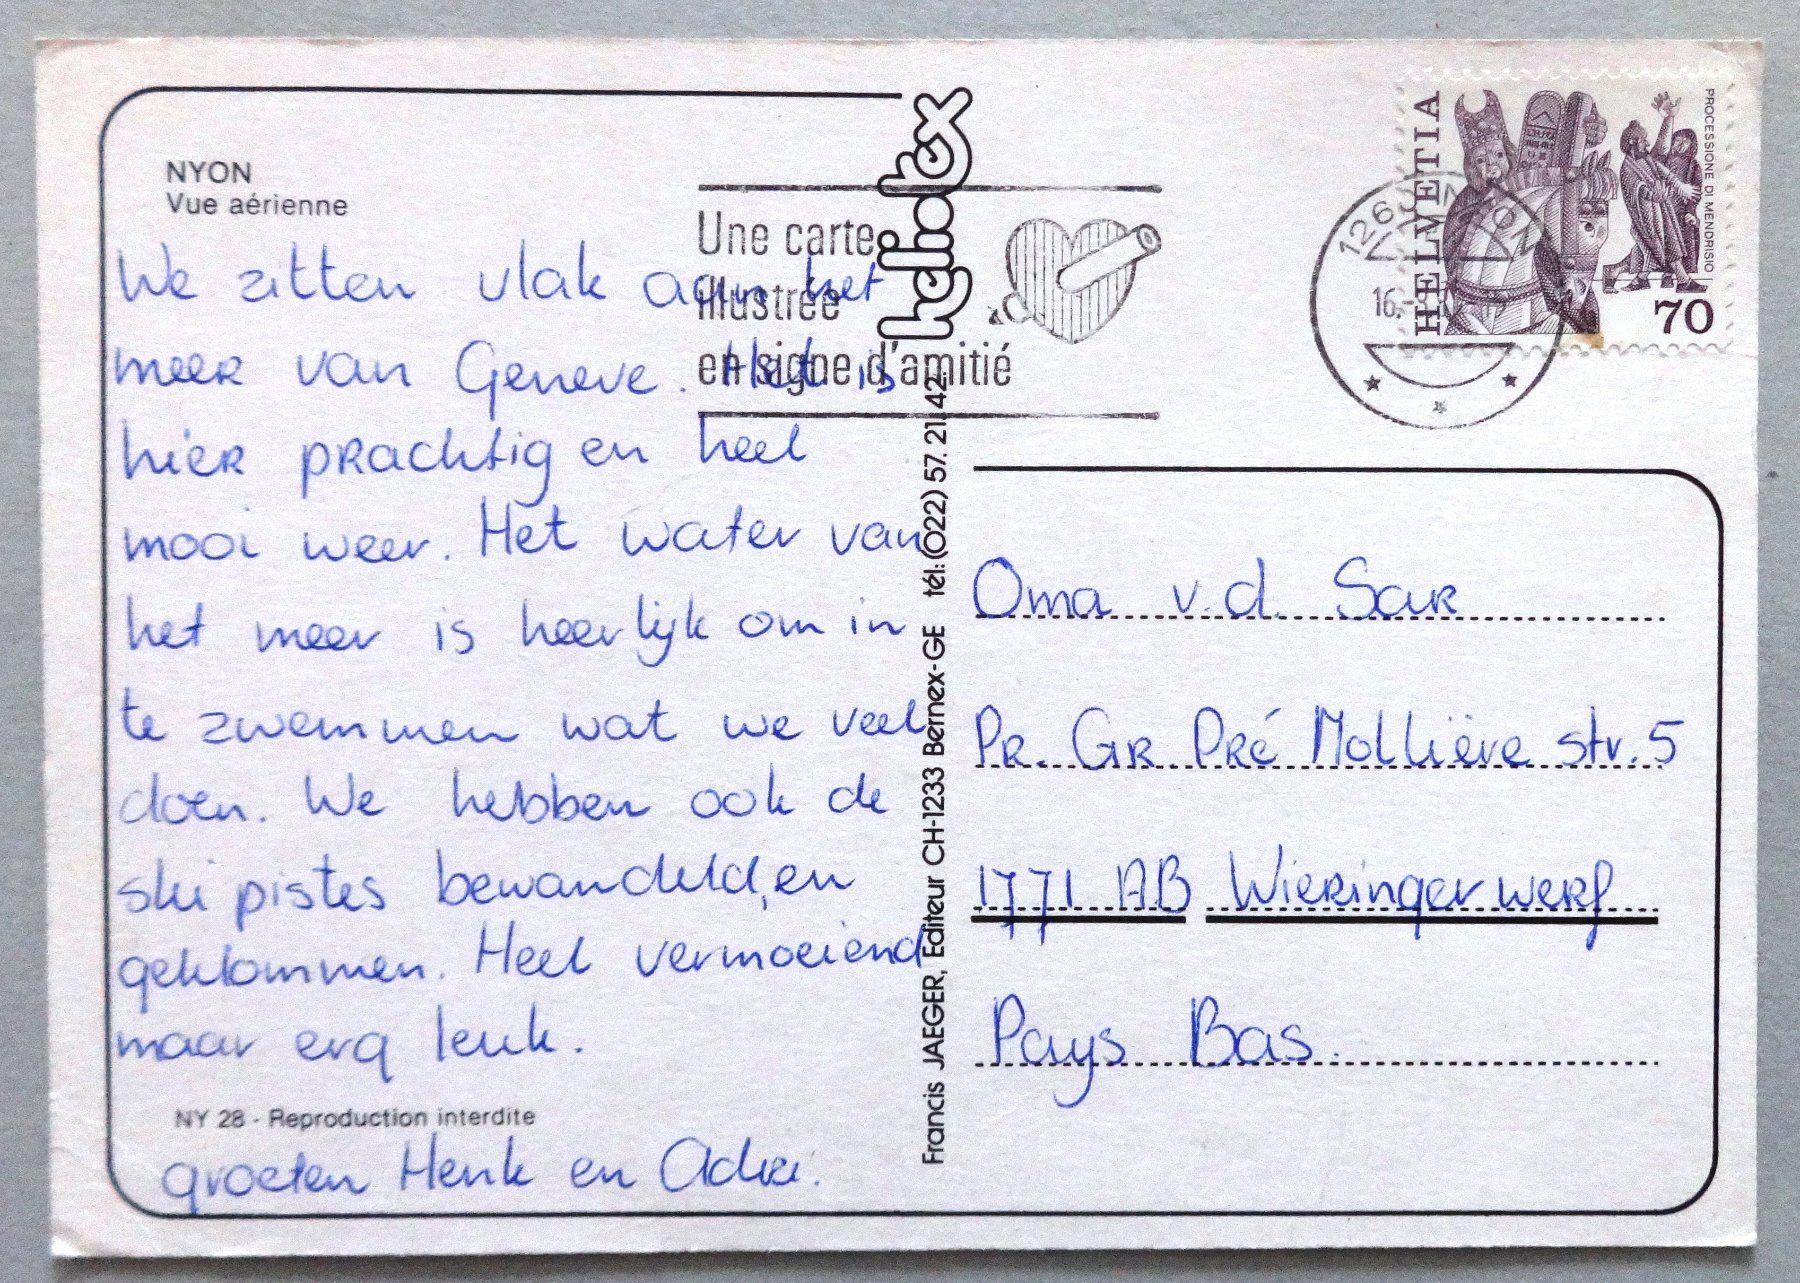 NYON
Vue aérienne
We zitten vlak aan het
meer van Geneve. Het is
hier prachtig en heel
mooi weer. Het water van
het meer is heerlijk om in
te zwemmen wat we veel
doen. We hebben ook de
ski pistes bewandeld, en
geklommen. Heel vermoeiend
maar erg leuk.
NY 28 - Reproduction interdite
groeten Henk en
heliotex
Francis JAEGER, Editeur CH-1233 Bernex-GE tél: (022) 57. 21. 42
Une carte
illustrée
en signe d'amitié
HELVETIA
PROCESSIONE DI MENDRISIO
70
1260 NYON
16.-
Oma v.d. Sar
Pr. Gr Pré Mollière str. 5
1771 AB Wieringerwerf
Pays Bas.